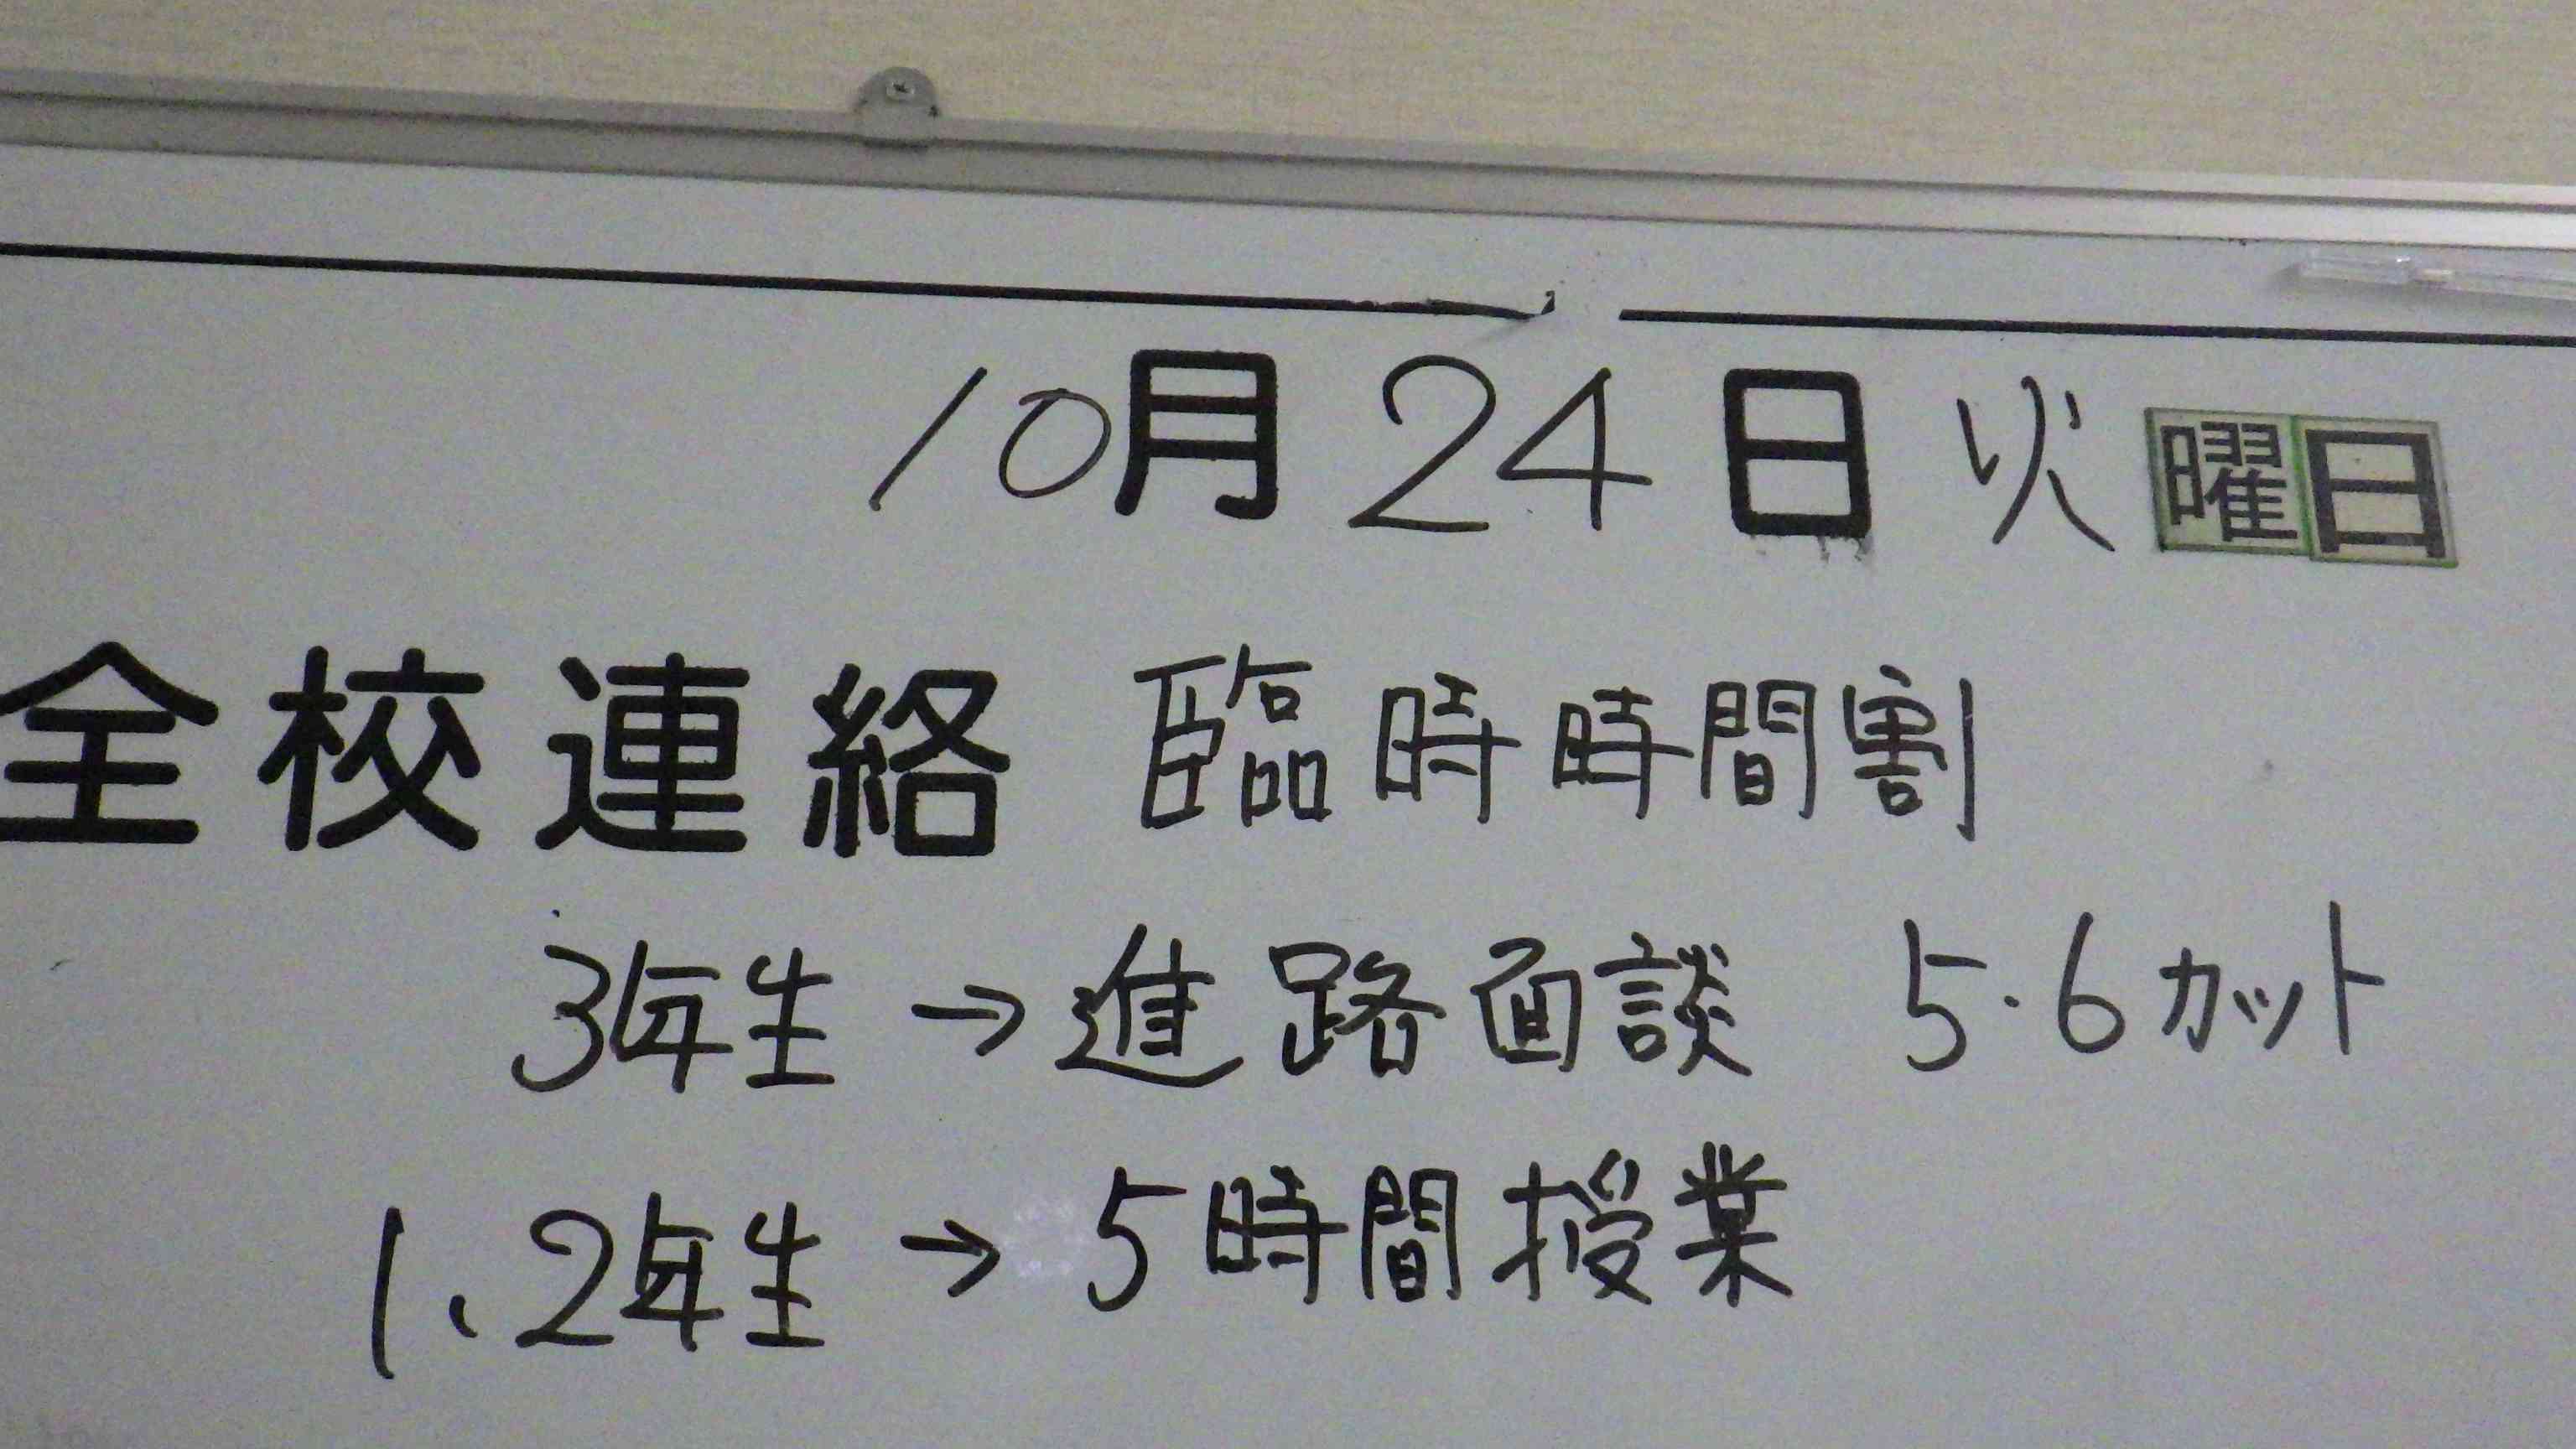 10月24日火曜日
全校連絡 臨時時間割
3年生→進路面談 5·6カット
1、2年生→5時間授業